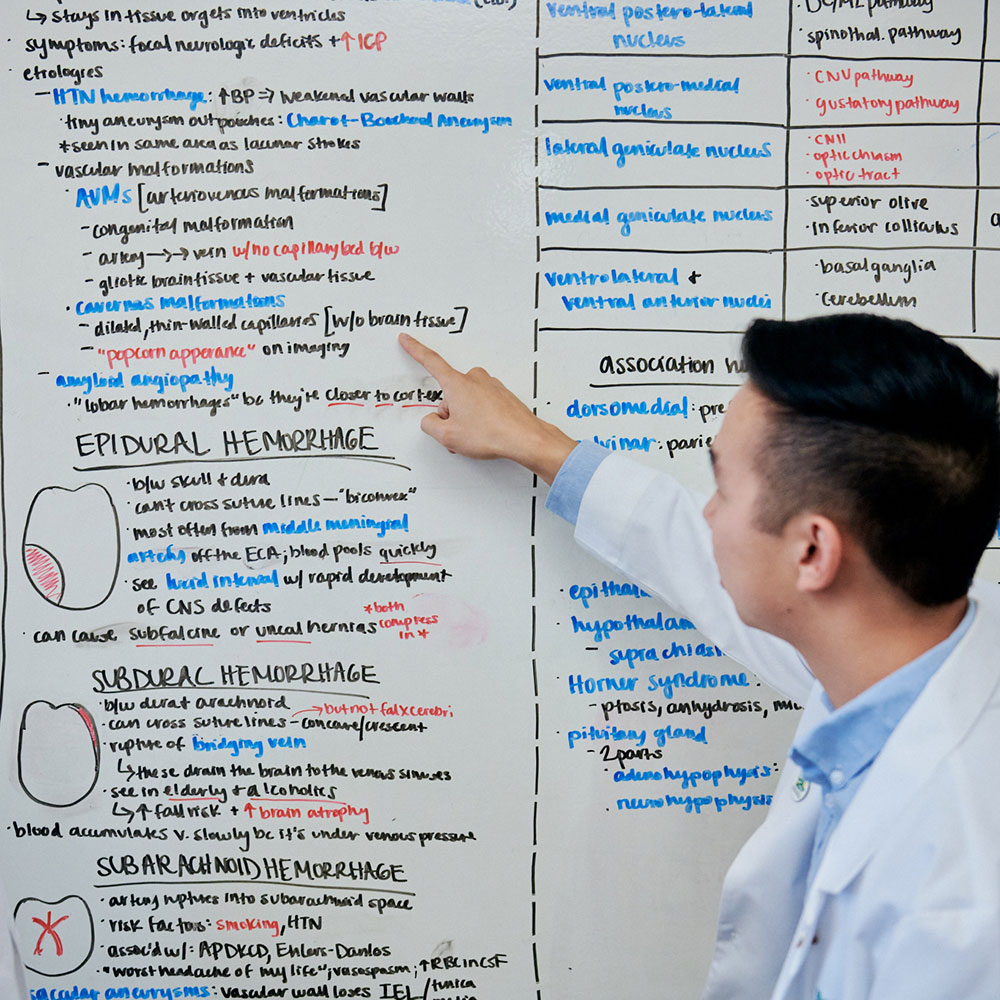 ↳ stays in tissue or gets into ventricles
· symptoms: focal neurologic deficits + ↑ICP
· etiologies
– HTN hemorrhage: ↑BP ⇒ weakened vascular walls
· tiny aneurysm outpouches: Charcot-Bouchard Aneurysm
*seen in same area as lacunar strokes
– vascular malformations
· AVMs [arteriovenous malformations]
– congenital malformation
– artery →→ vein w/no capillary bed b/w
– gliotic brain tissue + vascular tissue
· cavernous malformations
– dilated, thin-walled capillaries [w/o brain tissue]
– "popcorn apperance" on imaging
– amyloid angiopathy
· "lobar hemorrhages" bc they're closer to cortex
EPIDURAL HEMORRHAGE
· b/w skull + dura
· can't cross suture lines – "biconvex"
· most often from middle meningeal
artery off the ECA; blood pools quickly
· see lucid interval w/ rapid development
of CNS defects
· can cause subfalcine or uncal hernias
*both
compress
in*
SUBDURAL HEMORRHAGE
· b/w dura + arachnoid
→ but not falx cerebri
· can cross suture lines – concave/crescent
· rupture of bridging vein
↳ these drain the brain to the venous sinuses
· see in elderly + alcoholics
↳ ↑ fall risk + ↑ brain atrophy
· blood accumulates v. slowly bc it's under venous pressure
SUBARACHNOID HEMORRHAGE
· artery ruptures into subarachnoid space
· risk factors: smoking, HTN
· assoc'd w/: APDKCD, Ehlers-Danlos
· "worst headache of my life"; vasospasm; ↑RBC in CSF
saccular aneurysms: vascular wall loses IEL/tunica
ventral postero-lateral
nucleus
· DC/ML pathway
· spinothal. pathway
ventral postero-medial
nucleus
· CNV pathway
· gustatory pathway
lateral geniculate nucleus
· CNII
· optic chiasm
· optic tract
medial geniculate nucleus
· superior olive
· inferior colliculus
ventrolateral +
ventral anterior nuclei
· basal ganglia
· cerebellum
association
dorsomedial: pre
parie
· epithal
· hypothalam
– suprachias
· Horner syndrome:
– ptosis, anhydrosis,
· pituitary gland
– 2 parts
· adenohypophysis:
· neurohypophysis